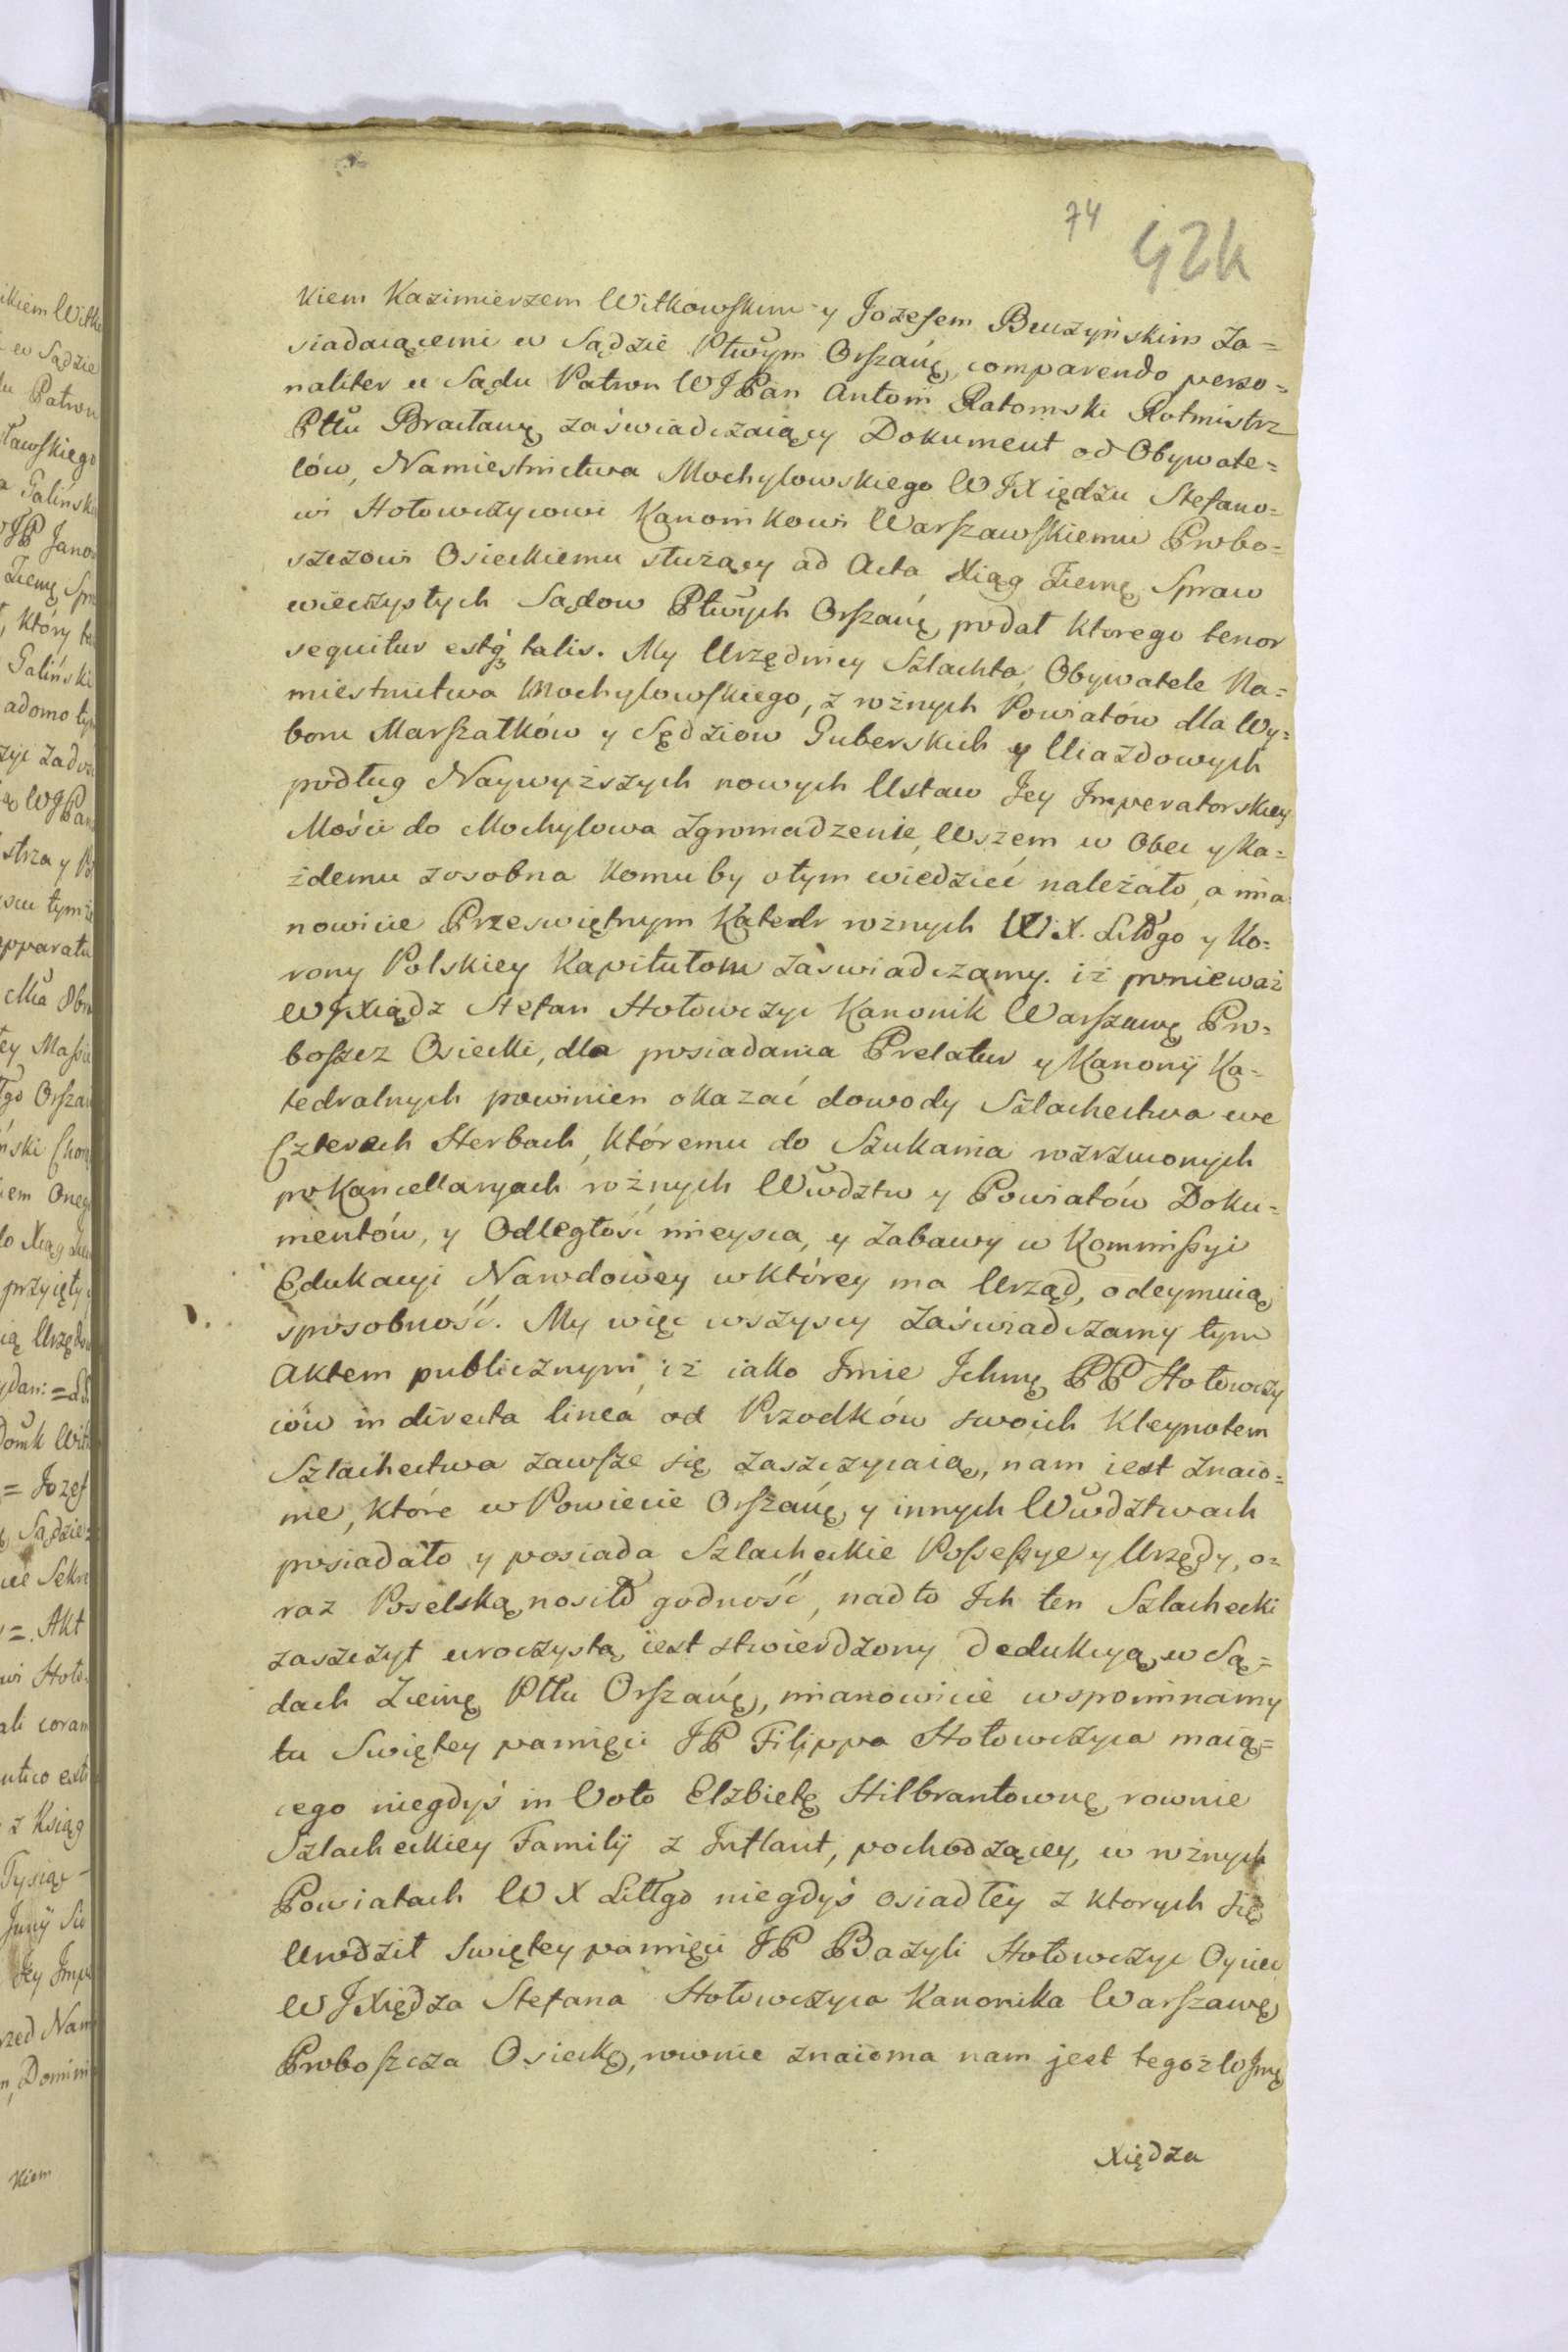 74 42k
kiem Kazimierzem Witkowskim y Jozefem Buczyńskim Za=
siadaiącemi w Sądzie Ptwym Orszańę, comparendo perso=
naliter u Sądu Patron WJPan Antoni Ratomski Rotmistrz
Pttu Bracławę zaświadczaiący Dokument od Obywate=
lów, Namiestnictwa Mochylowskiego WJXiędzu Stefano=
wi Hołowczycowi Kanonikowi Warszawskiemu Probo=
szczowi Osieckiemu służący ad Acta Xiąg Ziemę Spraw
wieczystych Sądow Ptwych Orszańę podał ktorego tenor
sequitur estq3 talis. My Urzędnicy Szlachta, Obywatele Na=
miestnictwa Mochylowskiego, z rożnych Powiatów dla Wy=
boru Marszałków y Sędziow Guberskich y Uiazdowych
podług Naywyższych nowych Ustaw Jey Imperatorskiey
Mości do Mochylowa zgromadzenie, Wszem w Obec y Ka=
żdemu zosobna komu by o tym wiedzieć należało, a mia
nowicie Przeswiętnym Katedr rożnych W. X. Littgo y Ko=
rony Polskiey Kapitułom zaswiadczamy. iż ponieważ
WJXiądz Stefan Hołowczyc Kanonik Warszawę Pro=
boszcz Osiecki, dla posiadania Prelatur y Kanonij Ka=
tedralnych powinien okazać dowody Szlachectwa we
Czterech Herbach, któremu do Szukania rozrzuconych
po Kancellaryach rożnych Wwdztw y Powiatów Doku=
mentów, y Odległość mieysca, y Zabawy w Kommissyi
Edukacyi Narodowey w którey ma Urząd, odeymuią
sposobność. My więc wszyscy Zaświadczamy tym
Aktem publicznym, iż iako Imie Ichmę PP Hołowczy
ców in directa linea od Przodków swoich Kleynotem
Szlachectwa zawsze się zaszczycaią, nam iest znaio=
me, które w Powiecie Orszańę y innych Wwdztwach
posiadało y posiada Szlacheckie Possessye y Urzędy, o=
raz Poselską nosiło godność, nadto Ich ten Szlachecki
zaszczyt uroczystą iest stwierdzony dedukcyą w Są=
dach Ziemę Pttu Orszańę, mianowicie wspominamy
tu Swiętey pamięci JP Filippa Hołowczyca maią=
cego niegdyś in Voto Elżbietę Hilbrantownę, rownie
Szlacheckiey Familij z Inflant, pochodzącey, w rożnych
Powiatach W X Littgo niegdyś osiadłey z ktorych się
Urodził Swiętey pamięci JP Bazyli Hołowczyc Oyciec
WJXiędza Stefana Hołowczyca Kanonika Warszawę
Proboszcza Osieckę, rownie znaioma nam jest tegoż WJmę
Xiędza